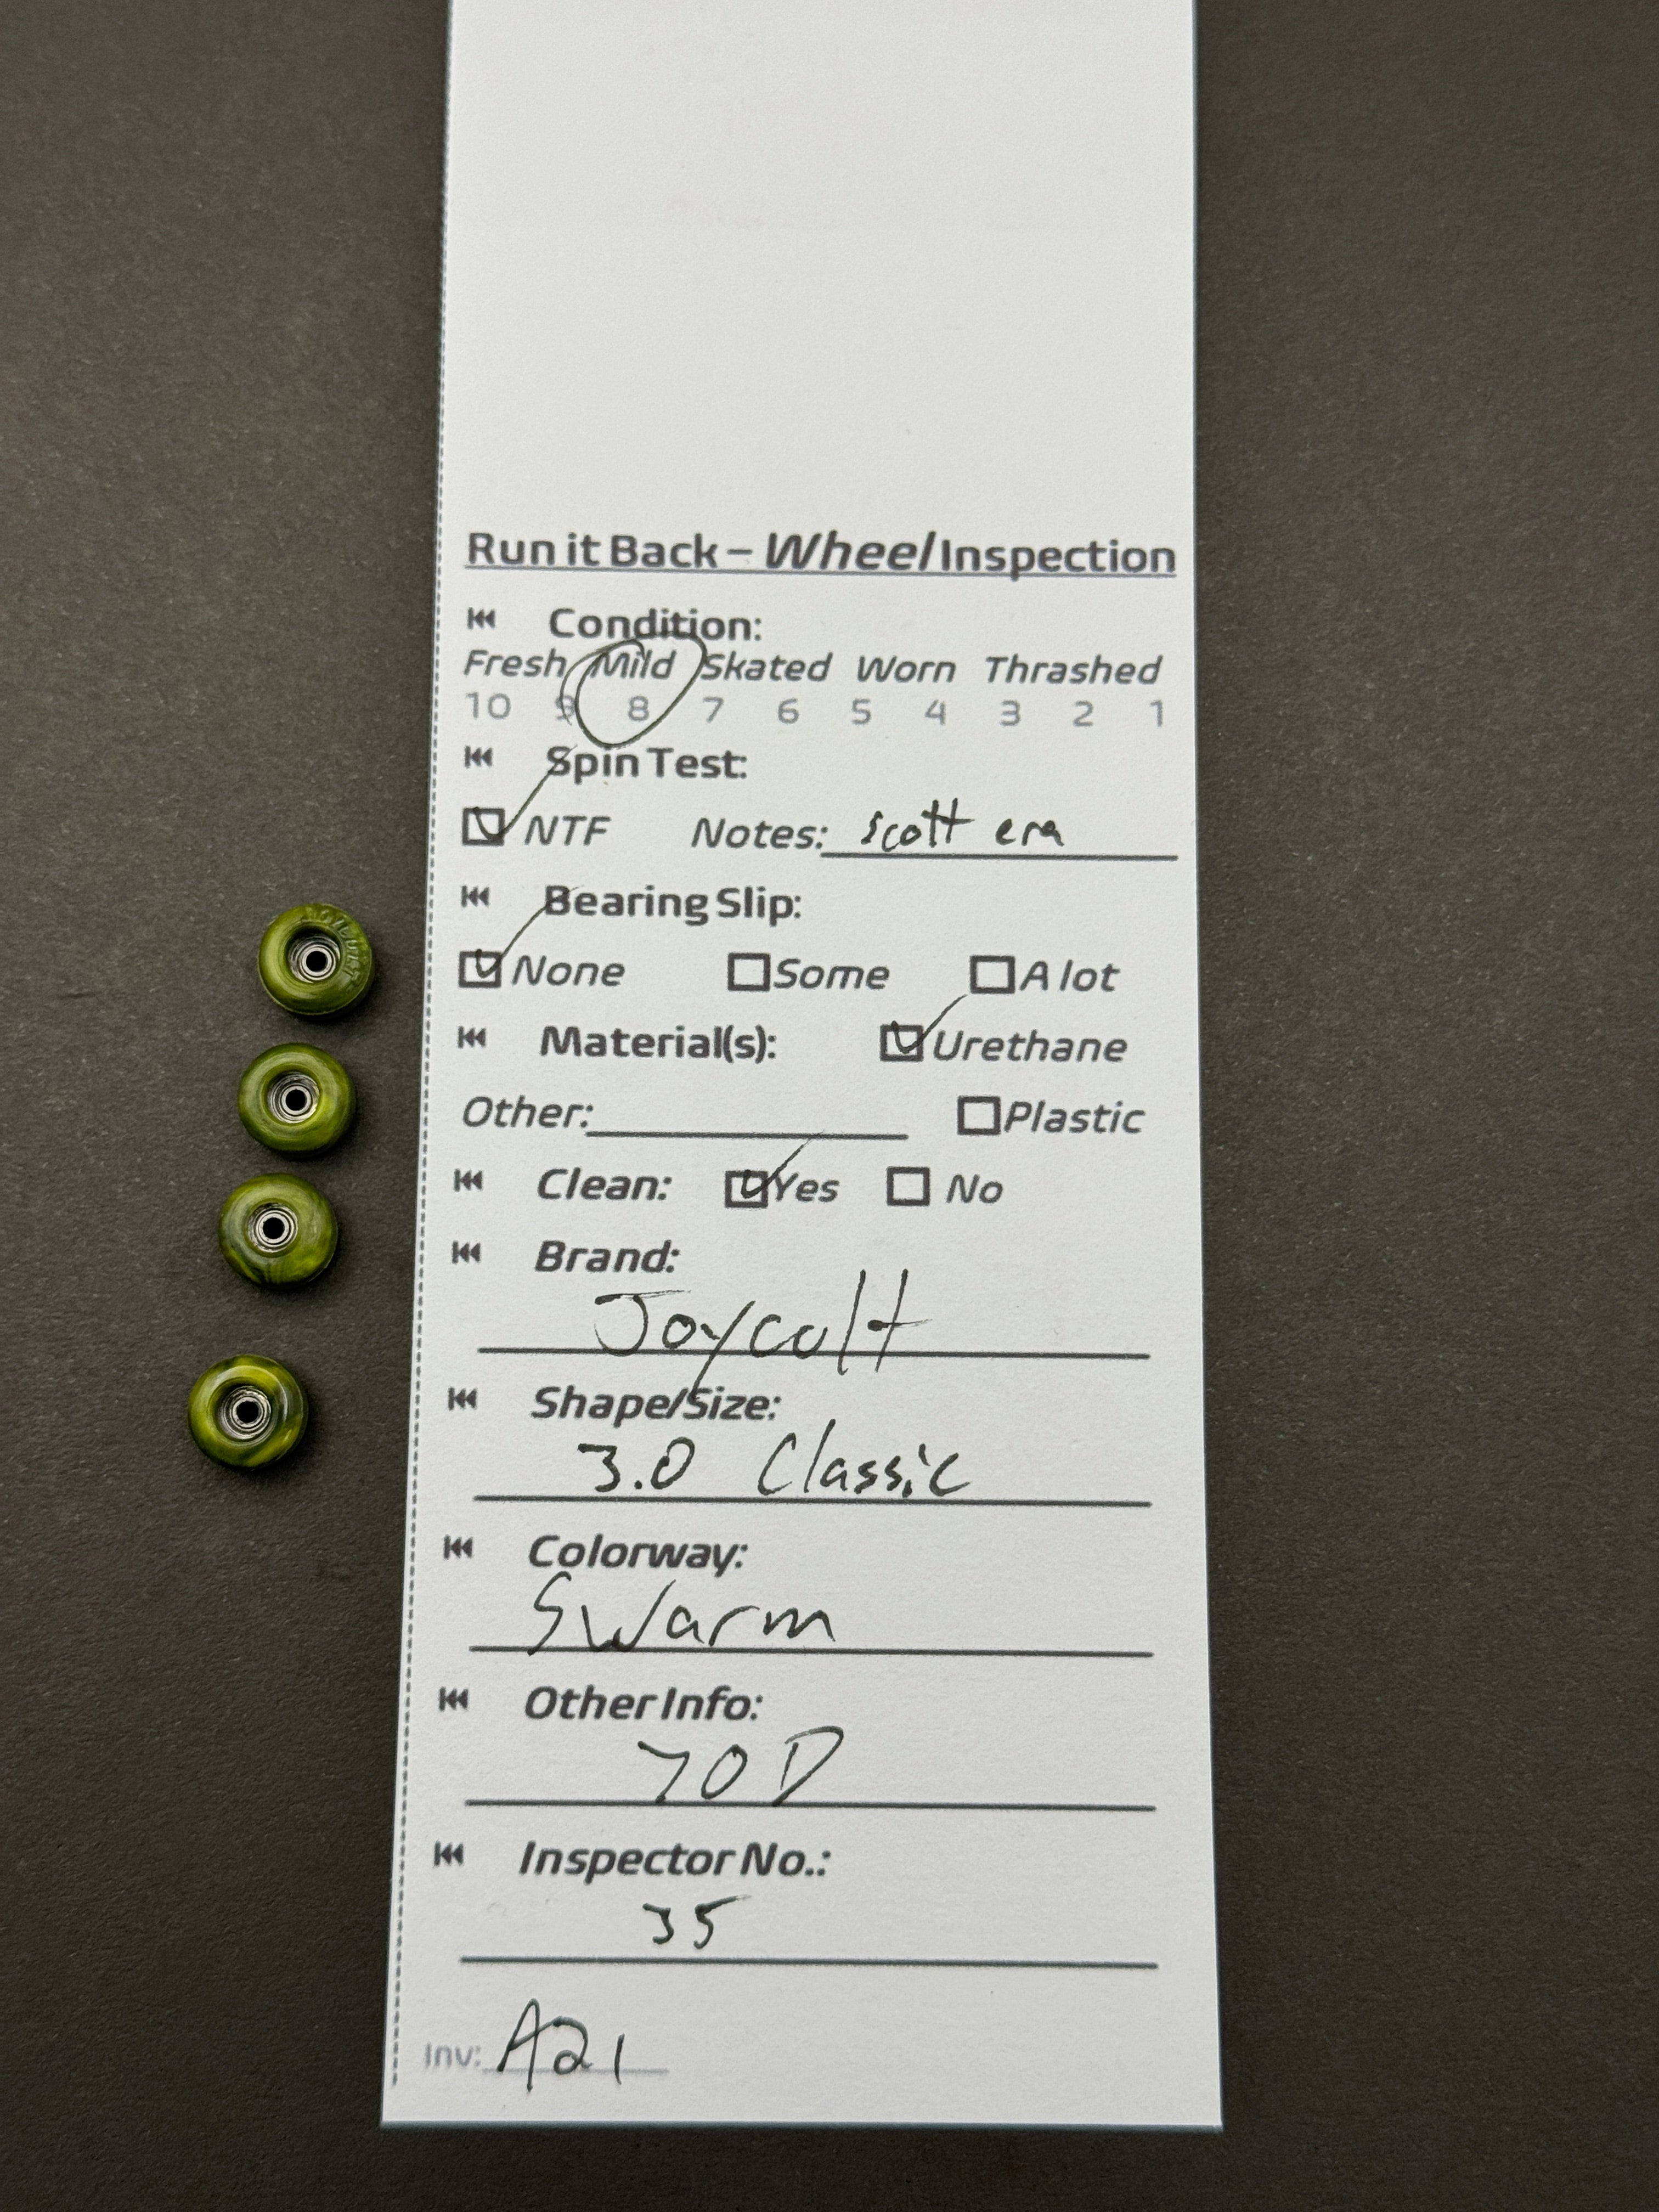 Run it Back – Wheel Inspection
Condition:
Fresh Mild Skated Worn Thrashed
10 9 8 7 6 5 4 3 2 1
Spin Test:
NTF Notes: scott era
Bearing Slip:
None Some A lot
Material(s): Urethane
Other: Plastic
Clean: Yes No
Brand:
Joycult
Shape/Size:
3.0 Classic
Colorway:
Swarm
Other Info:
70D
Inspector No.:
35
Inv: A21